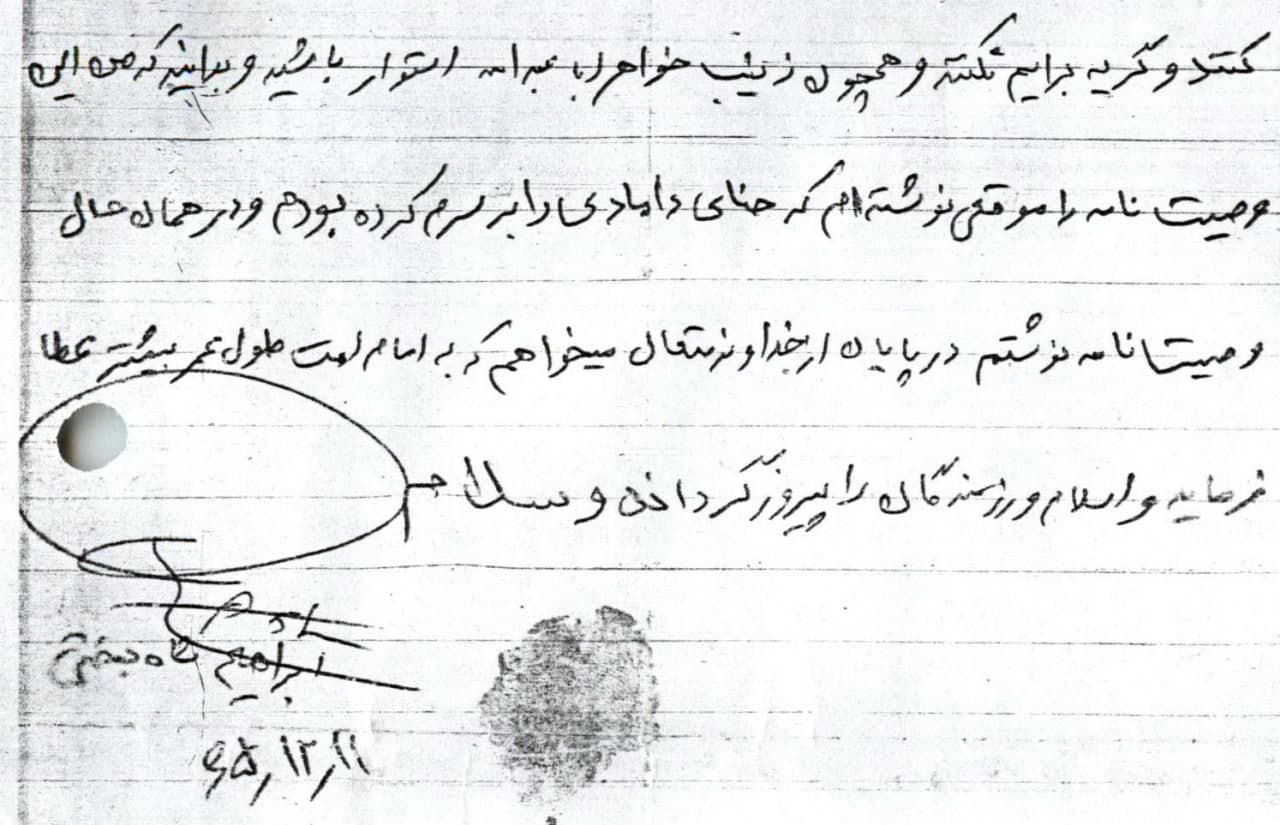 کنند و گریه برایم نکنند و همچون زینب خواهر ابا عبداله استوار باشید و بدانید که من این
وصیت نامه را موقعی نوشته ام که حنای دامادی را بر سرم کرده بودم و در همان حال
وصیتنامه نوشتم در پایان از خداوند متعال میخواهم که به امام امت طول عمر بیشتر عطا
فرماید و اسلام و رزمندگان را پیروز گردان
ابراهیم شاه
۶۵/۱۲/۱۱